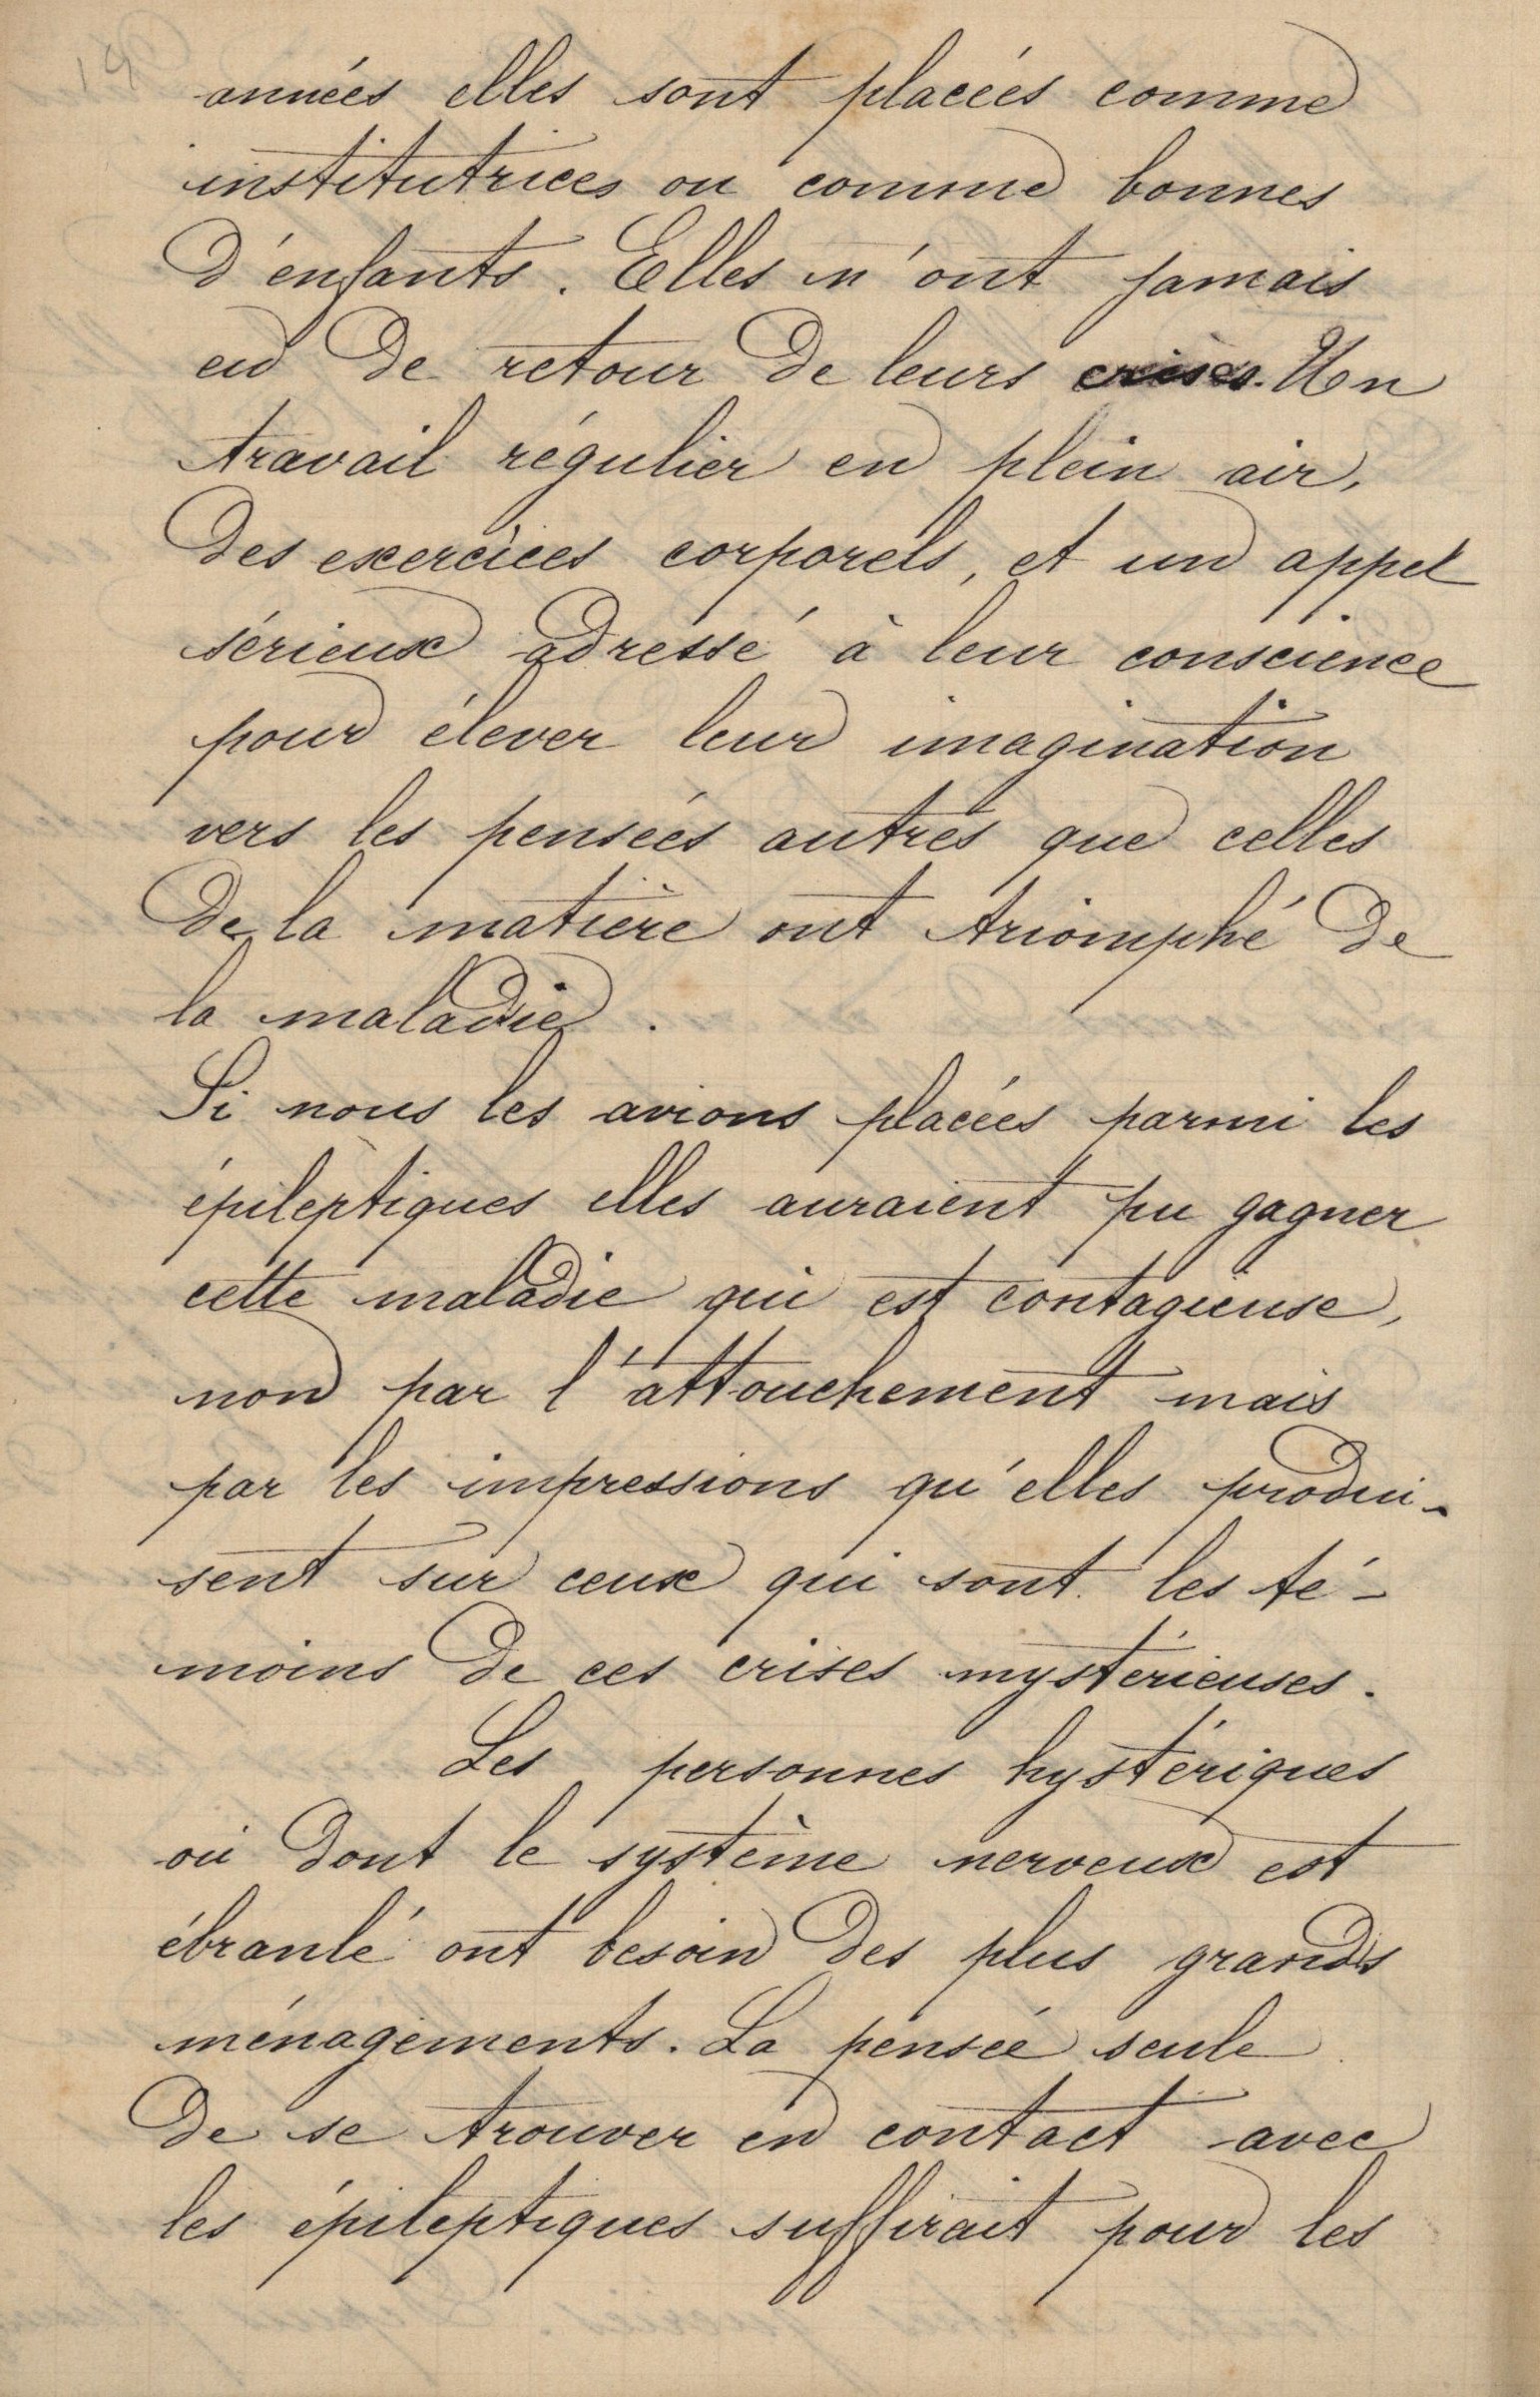 années elles sont placées comme
institutrices ou comme bonnes
d'enfants. Elles n'ont jamais
eu de retour de leurs crises. Un
travail régulier en plein air,
des exercices corporels, et un appel
sérieux adressé à leur conscience
pour élever leur imagination
vers les pensées autres que celles
de la matière ont triomphé de
la maladie.
Si nous les avions placées parmi les
épileptiques elles auraient pu gagner
cette maladie qui est contagieuse,
non par l'attouchement mais
par les impressions qu'elles produi-
sent sur ceux qui sont les té-
moins de ces crises mystérieuses.
Les personnes hystériques
où dont le système nerveux est
ébranlé ont besoin des plus grands
ménagements. La pensée seule
de se trouver en contact avec
les épileptiques suffirait pour les